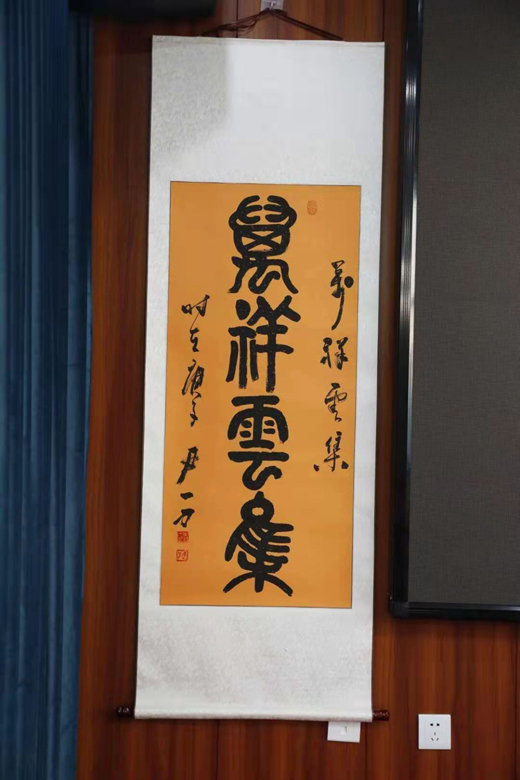 萬祥雲集
萬祥雲集
时在庚子
尹一方